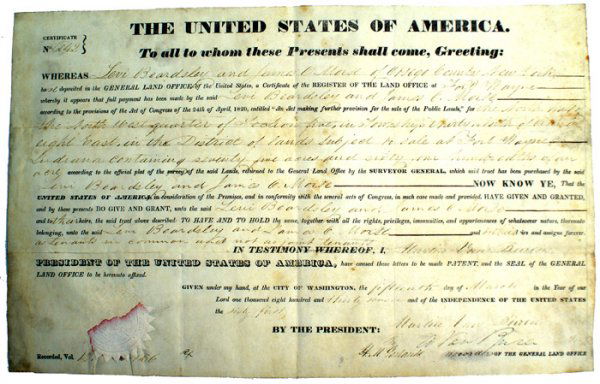 THE UNITED STATES OF AMERICA.
CERTIFICATE
No. 242
To all to whom these Presents shall come, Greeting:
WHEREAS Levi Beardsley and James O Morse of Otsego County New York
have deposited in the GENERAL LAND OFFICE of the United States, a Certificate of the REGISTER OF THE LAND OFFICE at Fort Wayne
whereby it appears that full payment has been made by the said Levi Beardsley and James O Morse
according to the provisions of the Act of Congress of the 24th of April, 1820, entitled "An Act making further provision for the sale of the Public Lands," for
the North West quarter of Section in Township North of
eight East, in the District of Lands subject to sale at Fort Wayne
Indiana containing seventy five acres and sixty one hundredths of an
acre according to the official plat of the survey of the said Lands, returned to the General Land Office by the SURVEYOR GENERAL, which said tract has been purchased by the said
Levi Beardsley and James O. Morse NOW KNOW YE, That the
UNITED STATES OF AMERICA, in consideration of the Premises, and in conformity with the several acts of Congress, in such case made and provided, HAVE GIVEN AND GRANTED,
and by these presents DO GIVE AND GRANT, unto the said Levi Beardsley and James O
and to their heirs, the said tract above described: TO HAVE AND TO HOLD the same, together with all the rights, privileges, immunities, and appurtenances of whatsoever nature, thereunto
belonging, unto the said Levi Beardsley and James O Morse and to their heirs and assigns forever.
as tenants in common and not as joint tenants
IN TESTIMONY WHEREOF, I, Martin Van Buren
PRESIDENT OF THE UNITED STATES OF AMERICA, have caused these letters to be made PATENT, and the SEAL of the GENERAL
LAND OFFICE to be hereunto affixed.
GIVEN under my hand, at the CITY OF WASHINGTON, the fifteenth day of March in the Year of our
Lord one thousand eight hundred and thirty seven and of the INDEPENDENCE OF THE UNITED STATES
the sixty first
BY THE PRESIDENT: Martin Van Buren
By Van Buren
Recorded, Vol. OF THE GENERAL LAND OFFICE